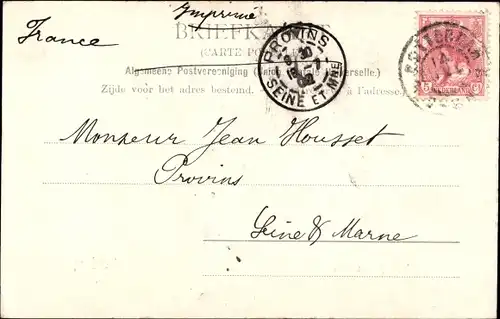 Imprimé
France
BRIEFKAART
(CARTE POSTALE)
Algemeene Postvereeniging (Union Postale Universelle).
Zijde voor het adres bestemd. à l'adresse.
PROVINS
SEINE ET MNE
5 NEDERLAND
Monsieur Jean Housset
Provins
Seine & Marne